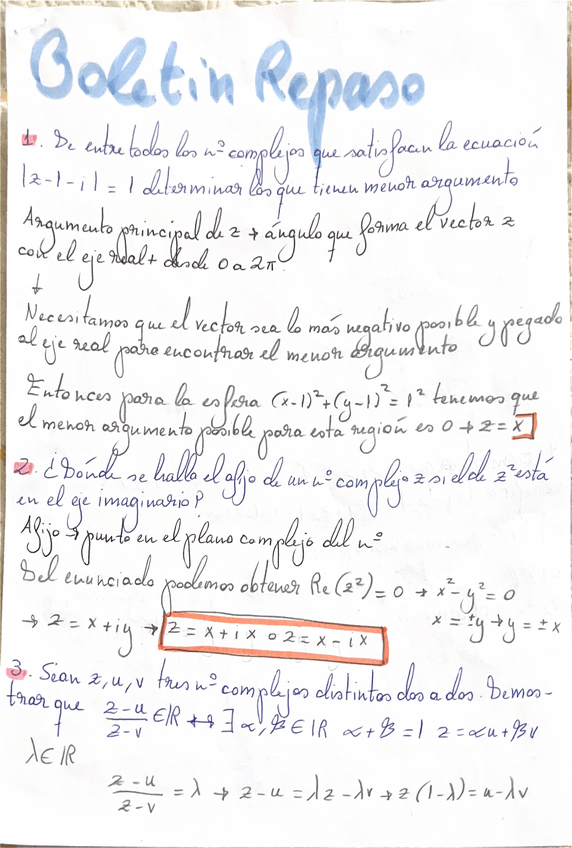 Boletín Repaso
1. De entre todos los nº complejos que satisfacen la ecuación
|z-1-i| = 1 determinar los que tienen menor argumento
Argumento principal de z → ángulo que forma el vector z
con el eje real + desde 0 a 2π.
↓
Necesitamos que el vector sea lo más negativo posible y pegado
al eje real para encontrar el menor argumento
Entonces para la esfera (x-1)² + (y-1)² = 1² tenemos que
el menor argumento posible para esta región es 0 → z = x
2. ¿Dónde se halla el afijo de un nº complejo z si el de z² está
en el eje imaginario?
Afijo → punto en el plano complejo del nº
Del enunciado podemos obtener Re(z²) = 0 → x² - y² = 0
x = ±y → y = ±x
→ z = x + iy → z = x + ix o z = x - ix
3. Sean z, u, v tres nº complejos distintos dos a dos. Demos-
trar que z-u/z-v ∈ ℝ ↔ ∃ α, β ∈ ℝ α + β = 1 z = αu + βv
λ ∈ ℝ
z-u/z-v = λ → z - u = λz - λv → z(1-λ) = u - λv